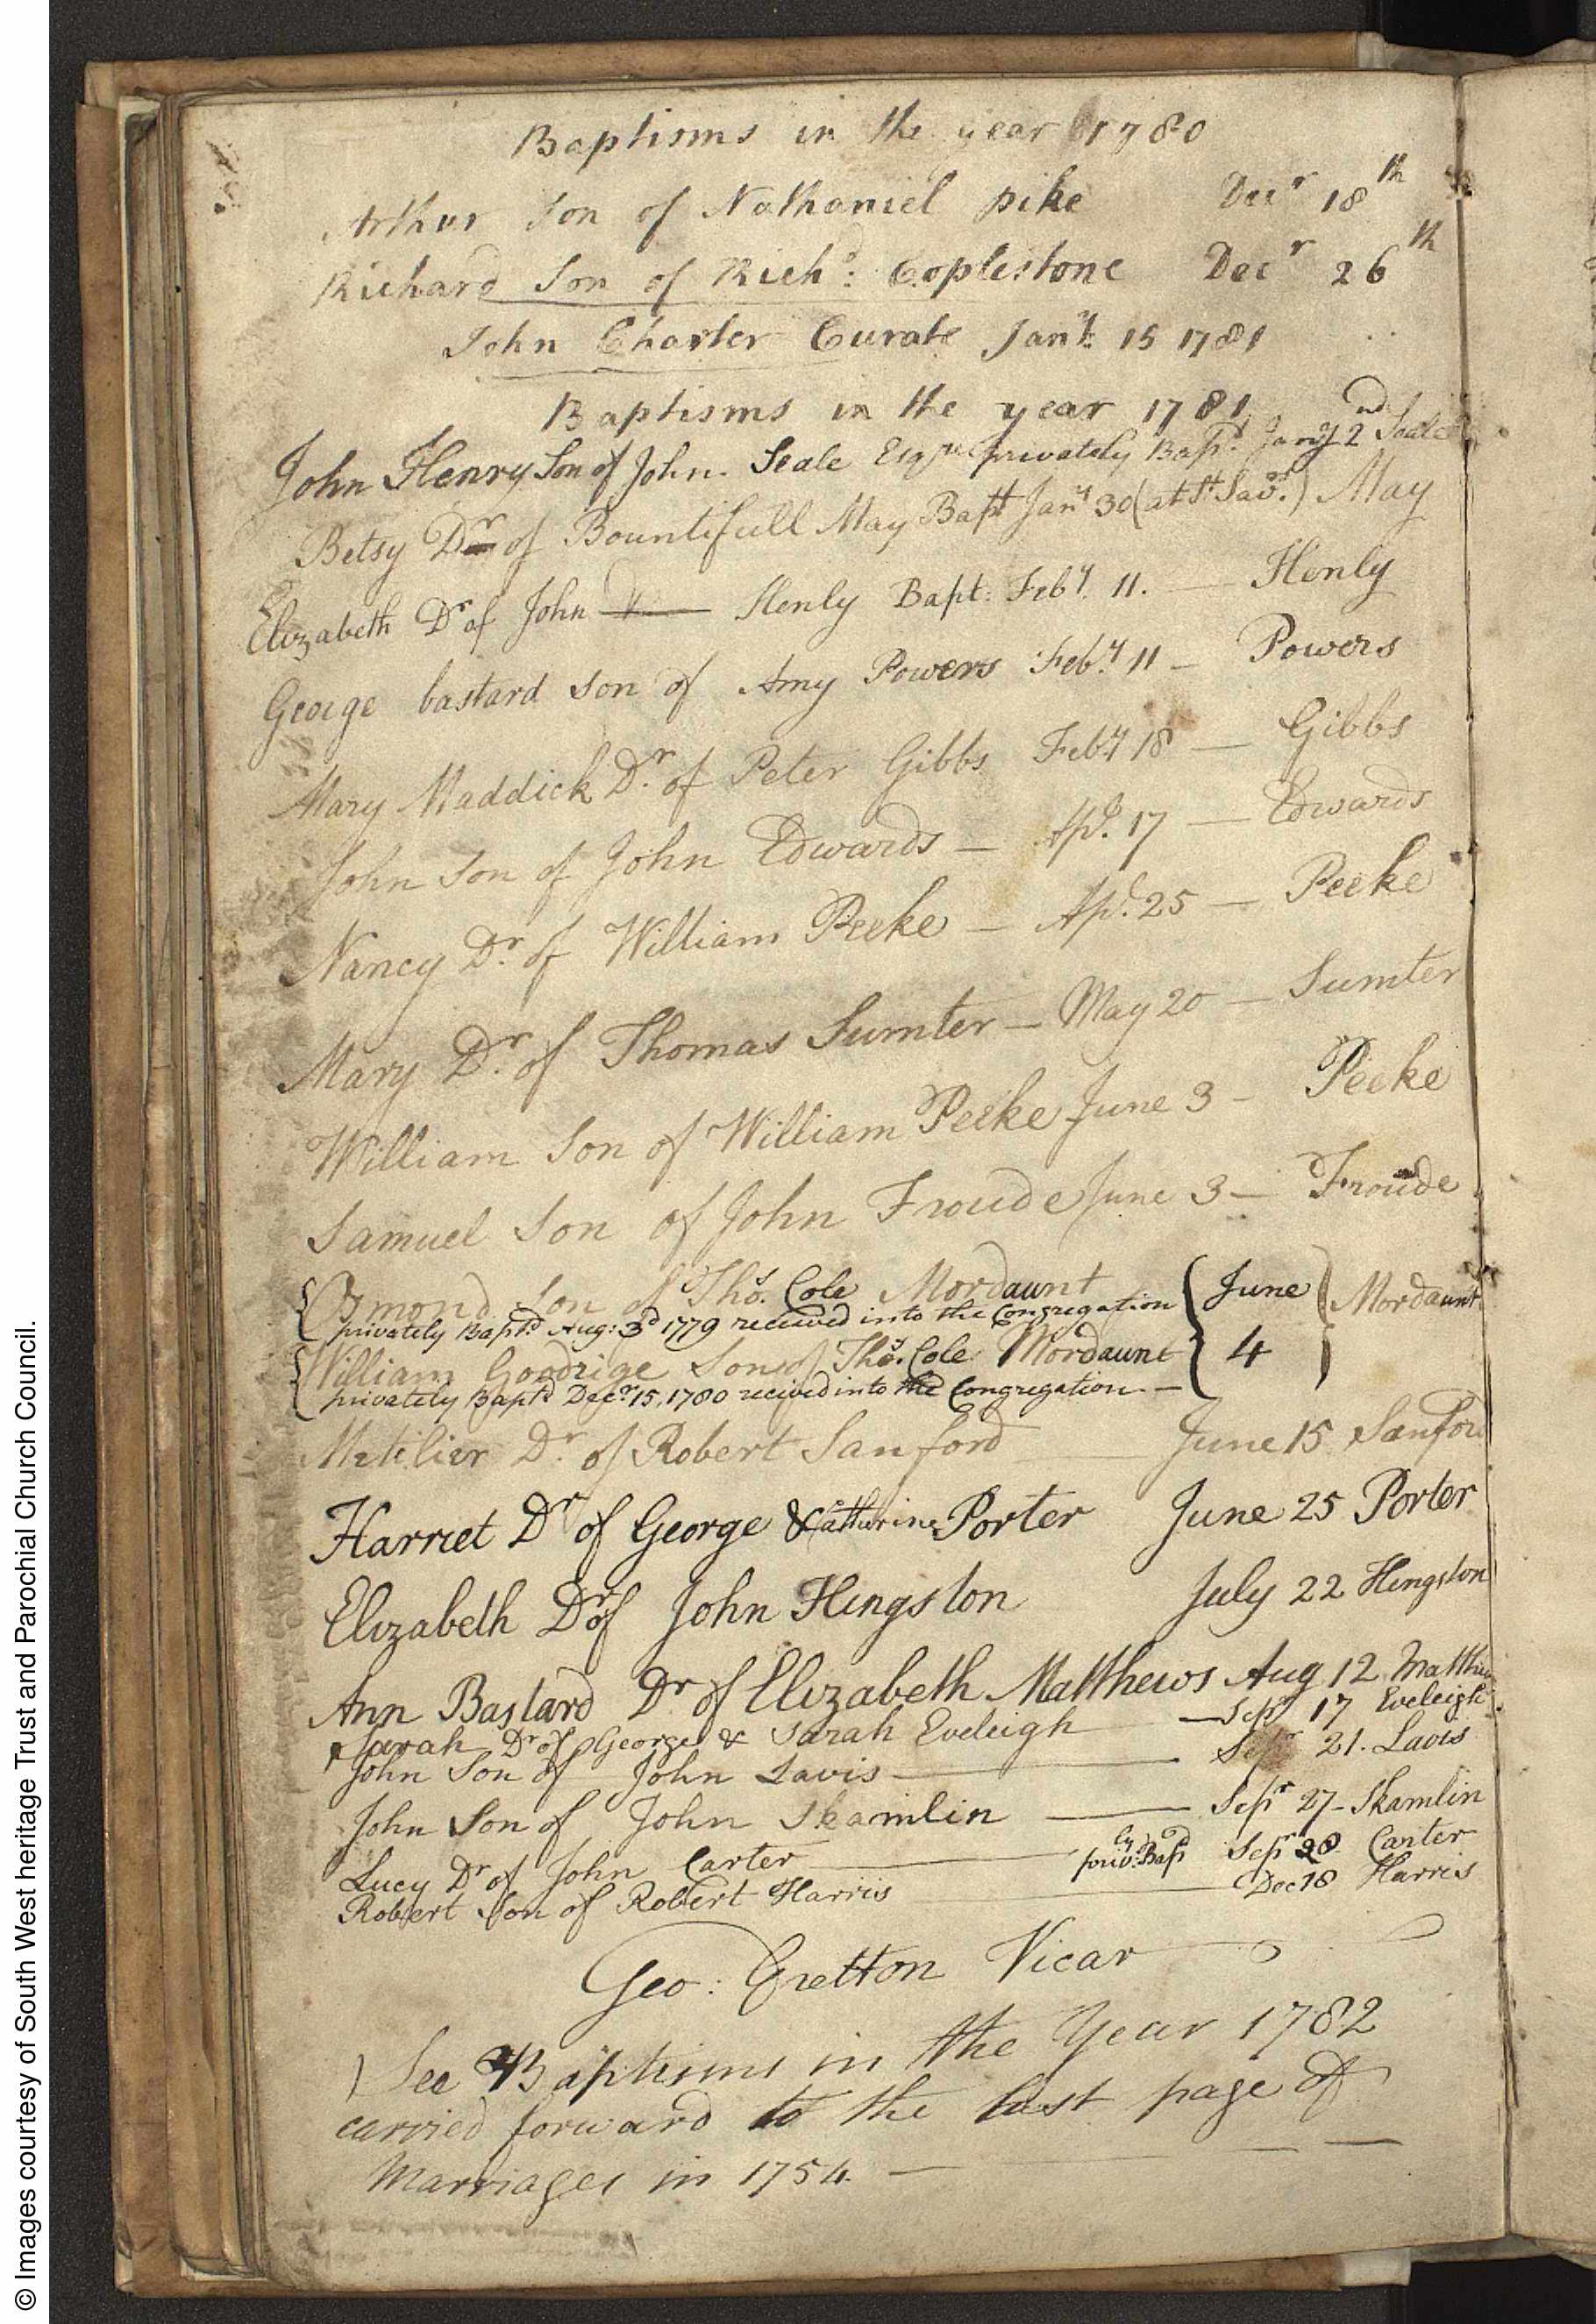 Baptisms in the year 1780
Arthur Son of Nathaniel pike Decr 18th
Richard Son of Richd: Coplestone Decr 26th
John Charter Curate Jany: 15 1781
Baptisms in the year 1781
John Henry Son of John Seale Esqr privately Bapd. Jany 2nd Seale
Betsy Dr of Bountifull May Bapt Jany 30 (at St Savs.) May
Elizabeth Dr of John Henly Bapt: Feby. 11. — Henly
George bastard son of Amy Powers Feby. 11 — Powers
Mary Maddick Dr. of Peter Gibbs Feby 18 — Gibbs
John Son of John Edwards — Apl. 17 — Edwards
Nancy Dr. of William Peeke — Apl. 25 — Peeke
Mary Dr. of Thomas Sumter — May 20 — Sumter
William Son of William Peeke June 3 — Peeke
Samuel Son of John Froude June 3 — Froude
Ozmond Son of Thos. Cole Mordaunt June Mordaunt
privately Baptd Aug: 3d 1779 received into the Congregation
William Goodrige Son of Thos. Cole Mordaunt 4
privately Baptd Decr. 15, 1780 recived into the Congregation —
Metilier Dr. of Robert Sanford June 15 Sanford
Harriet Dr of George & Catherine Porter June 25 Porter
Elizabeth Dr of John Hingston July 22 Hingston
Ann Bastard Dr of Elizabeth Matthews Aug 12 Matthews
Sarah Dr of George & Sarah Eveleigh — Sepr 17 Eveleigh
John Son of John Lavis — Sepr 21. Lavis
John Son of John Skamlin — Sepr 27 — Skamlin
Lucy Dr of John Carter — privly: Bapd Sepr 28 Carter
Robert Son of Robert Harris — Dec 18 Harris
Geo: Gretton Vicar
See Baptisms in the Year 1782
carried forward to the last page of
Marriages in 1754. —
© Images courtesy of South West heritage Trust and Parochial Church Council.